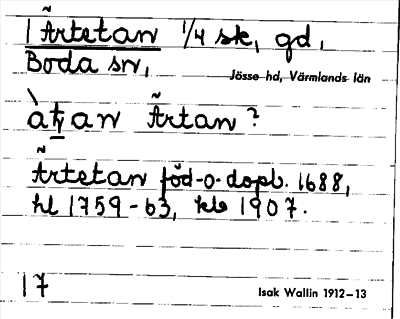 1 Ärtetan 1/4 sk, gd.
Boda sn,
Jösse hd, Värmlands län
Ärtan?
Ärtetan föd-o. dopb. 1688,
hl 1759-63, kb 1907.
17
Isak Wallin 1912-13